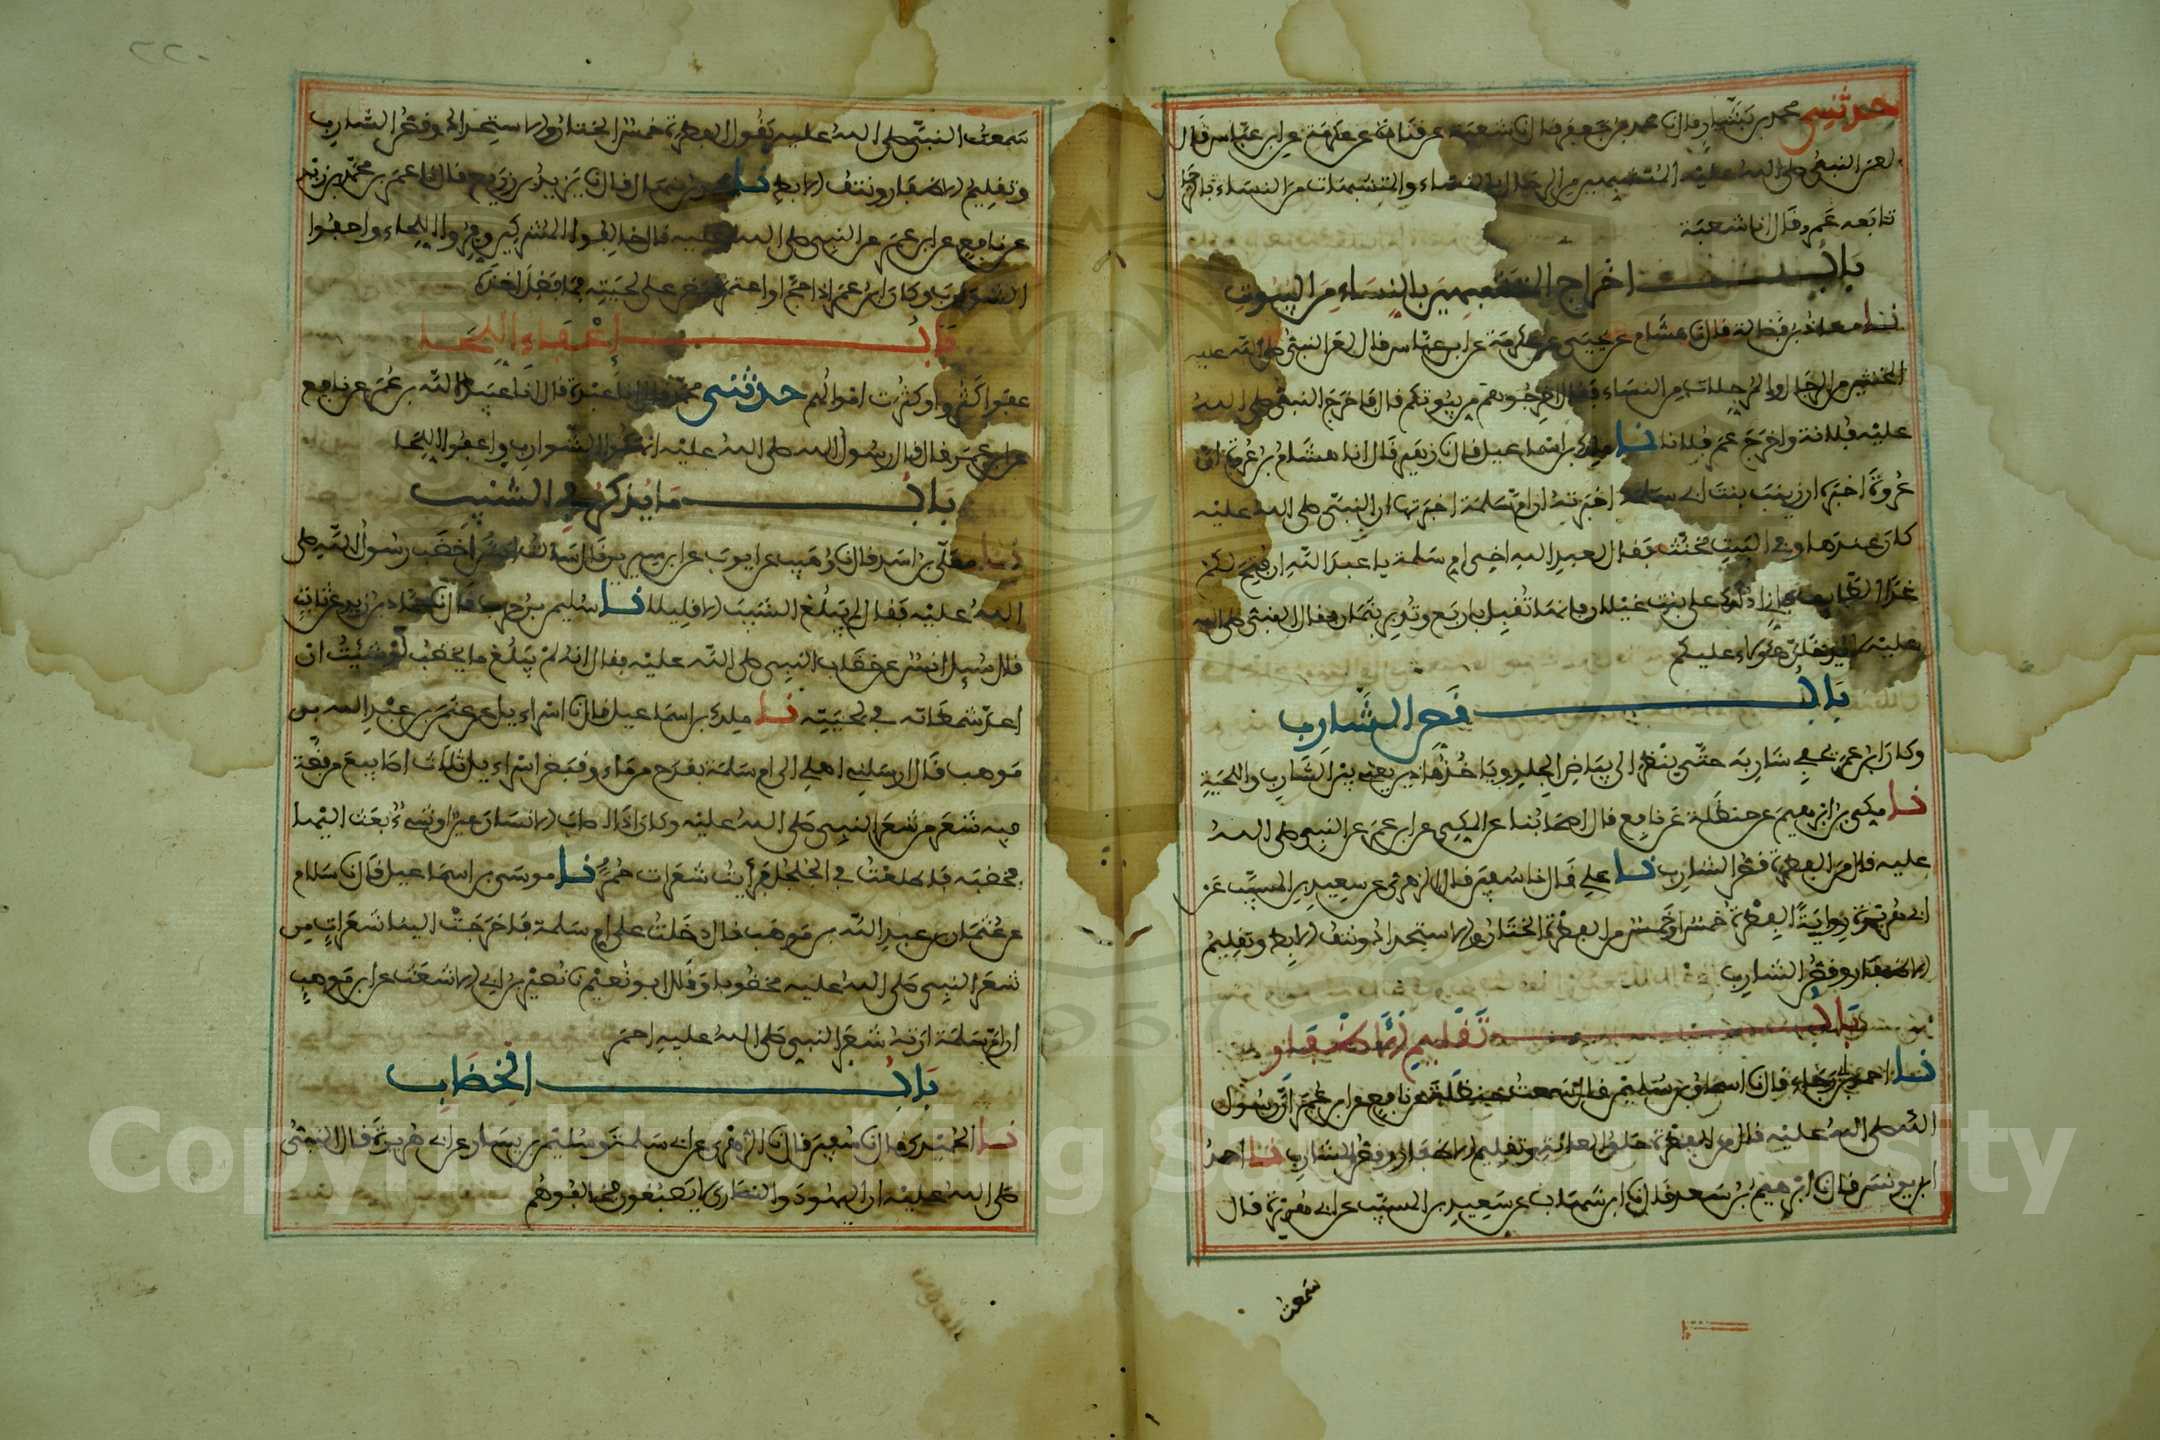 حدثني محمد بن بشار قال نا محمد بن جعفر قال نا شعبة عن قتادة عن عكرمة عن ابن عباس قال
لعن النبي صلى الله عليه المتشبهين من الرجال بالنساء والمتشبهات من النساء بالرجال
تابعه عمرو قال انا شعبة
باب اخراج المتشبهين بالنساء من البيوت
نا معاذ بن فضالة قال نا هشام عن يحيى عن عكرمة عن ابن عباس قال لعن النبي صلى الله عليه
المخنثين من الرجال والمترجلات من النساء وقال اخرجوهم من بيوتكم قال فاخرج النبي صلى الله
عليه فلانة واخرج عمر فلانا نا ملك بن اسماعيل قال نا زهير قال انا هشام بن عروة ان
عروة اخبره ان زينب بنت ابي سلمة اخبرته ان ام سلمة اخبرتها ان النبي صلى الله عليه
كان عندها وفي البيت مخنث فقال لعبد الله اخي ام سلمة يا عبد الله ان فتح لكم
غدا الطايف فاني ادلك على بنت غيلان فانها تقبل باربع وتدبر بثمان فقال النبي صلى الله
عليه لا يدخلن هؤلاء عليكم
باب قص الشارب
وكان ابن عمر يحفي شاربه حتى ينظر الى بياض الجلد وياخذ هاذين يعني بين الشارب واللحية
نا مكي بن ابرهيم عن حنظلة عن نافع قال اصحابنا عن المكي عن ابن عمر عن النبي صلى الله
عليه قال من الفطرة قص الشارب نا علي قال نا سفين قال الزهري عن سعيد بن المسيب عن
ابي هريرة رواية الفطرة خمس او خمس من الفطرة الختان والاستحداد ونتف الابط وتقليم
الاظفار وقص الشارب
باب تقليم الاظفار
نا احمد بن ابي رجاء قال نا اسحاق بن سليمن قال سمعت حنظلة عن نافع عن ابن عمر ان رسول
الله صلى الله عليه قال من الفطرة حلق العانة وتقليم الاظفار وقص الشارب نا احمد
ابن يونس قال نا ابرهيم بن سعد قال نا ابن شهاب عن سعيد بن المسيب عن ابي هريرة قال
سمعت
سمعت النبي صلى الله عليه يقول الفطرة خمس الختان والاستحداد وقص الشارب
وتقليم الاظفار ونتف الابط نا محمد بن منهال قال نا يزيد بن زريع قال نا عمر بن محمد بن زيد
عن نافع عن ابن عمر عن النبي صلى الله عليه قال خالفوا المشركين وفروا اللحاء واحفوا
الشوارب وكان ابن عمر اذا حج او اعتمر قبض على لحيته فما فضل اخذه
باب إعفاء اللحا
عفوا كثروا وكثرت اموالهم حدثني محمد قال انا عبدة قال انا عبيد الله بن عمر عن نافع
عن ابن عمر قال قال رسول الله صلى الله عليه انهكوا الشوارب واعفوا اللحا
باب ما يذكر في الشيب
نا معلى بن اسد قال نا وهيب عن ايوب عن ابن سيرين قال سالت انسا اخضب رسول الله صلى
الله عليه فقال لم يبلغ الشيب الا قليلا نا سليمن بن حرب قال نا حماد بن زيد عن ثابت
قال سيل انس عن خضاب النبي صلى الله عليه فقال انه لم يبلغ ما يخضب لو شئت ان
اعد شمطاته في لحيته نا ملك بن اسماعيل قال نا اسراءيل عن عثمن بن عبد الله بن
موهب قال ارسلني اهلي الى ام سلمة بقدح من ماء وقبض اسراءيل ثلاث اصابع من قصة
فيه شعر من شعر النبي صلى الله عليه وكان اذا اصاب الانسان عين او شيء بعث اليها
مخضبه فاطلعت في الجلجل فرأيت شعرات حمرا نا موسى بن اسماعيل قال نا سلام
عن عثمان بن عبد الله بن موهب قال دخلت على ام سلمة فاخرجت الينا شعرات من
شعر النبي صلى الله عليه مخضوبا وقال ابو نعيم نا نصير بن ابي الاشعث عن ابن موهب
ان ام سلمة ارته شعر النبي صلى الله عليه احمر
باب الخضاب
نا الحميدي قال نا سفين قال نا الزهري عن ابي سلمة وسليمن بن يسار عن ابي هريرة قال النبي
صلى الله عليه ان اليهود والنصارى لا يصبغون فخالفوهم
Copyright © King Saud University